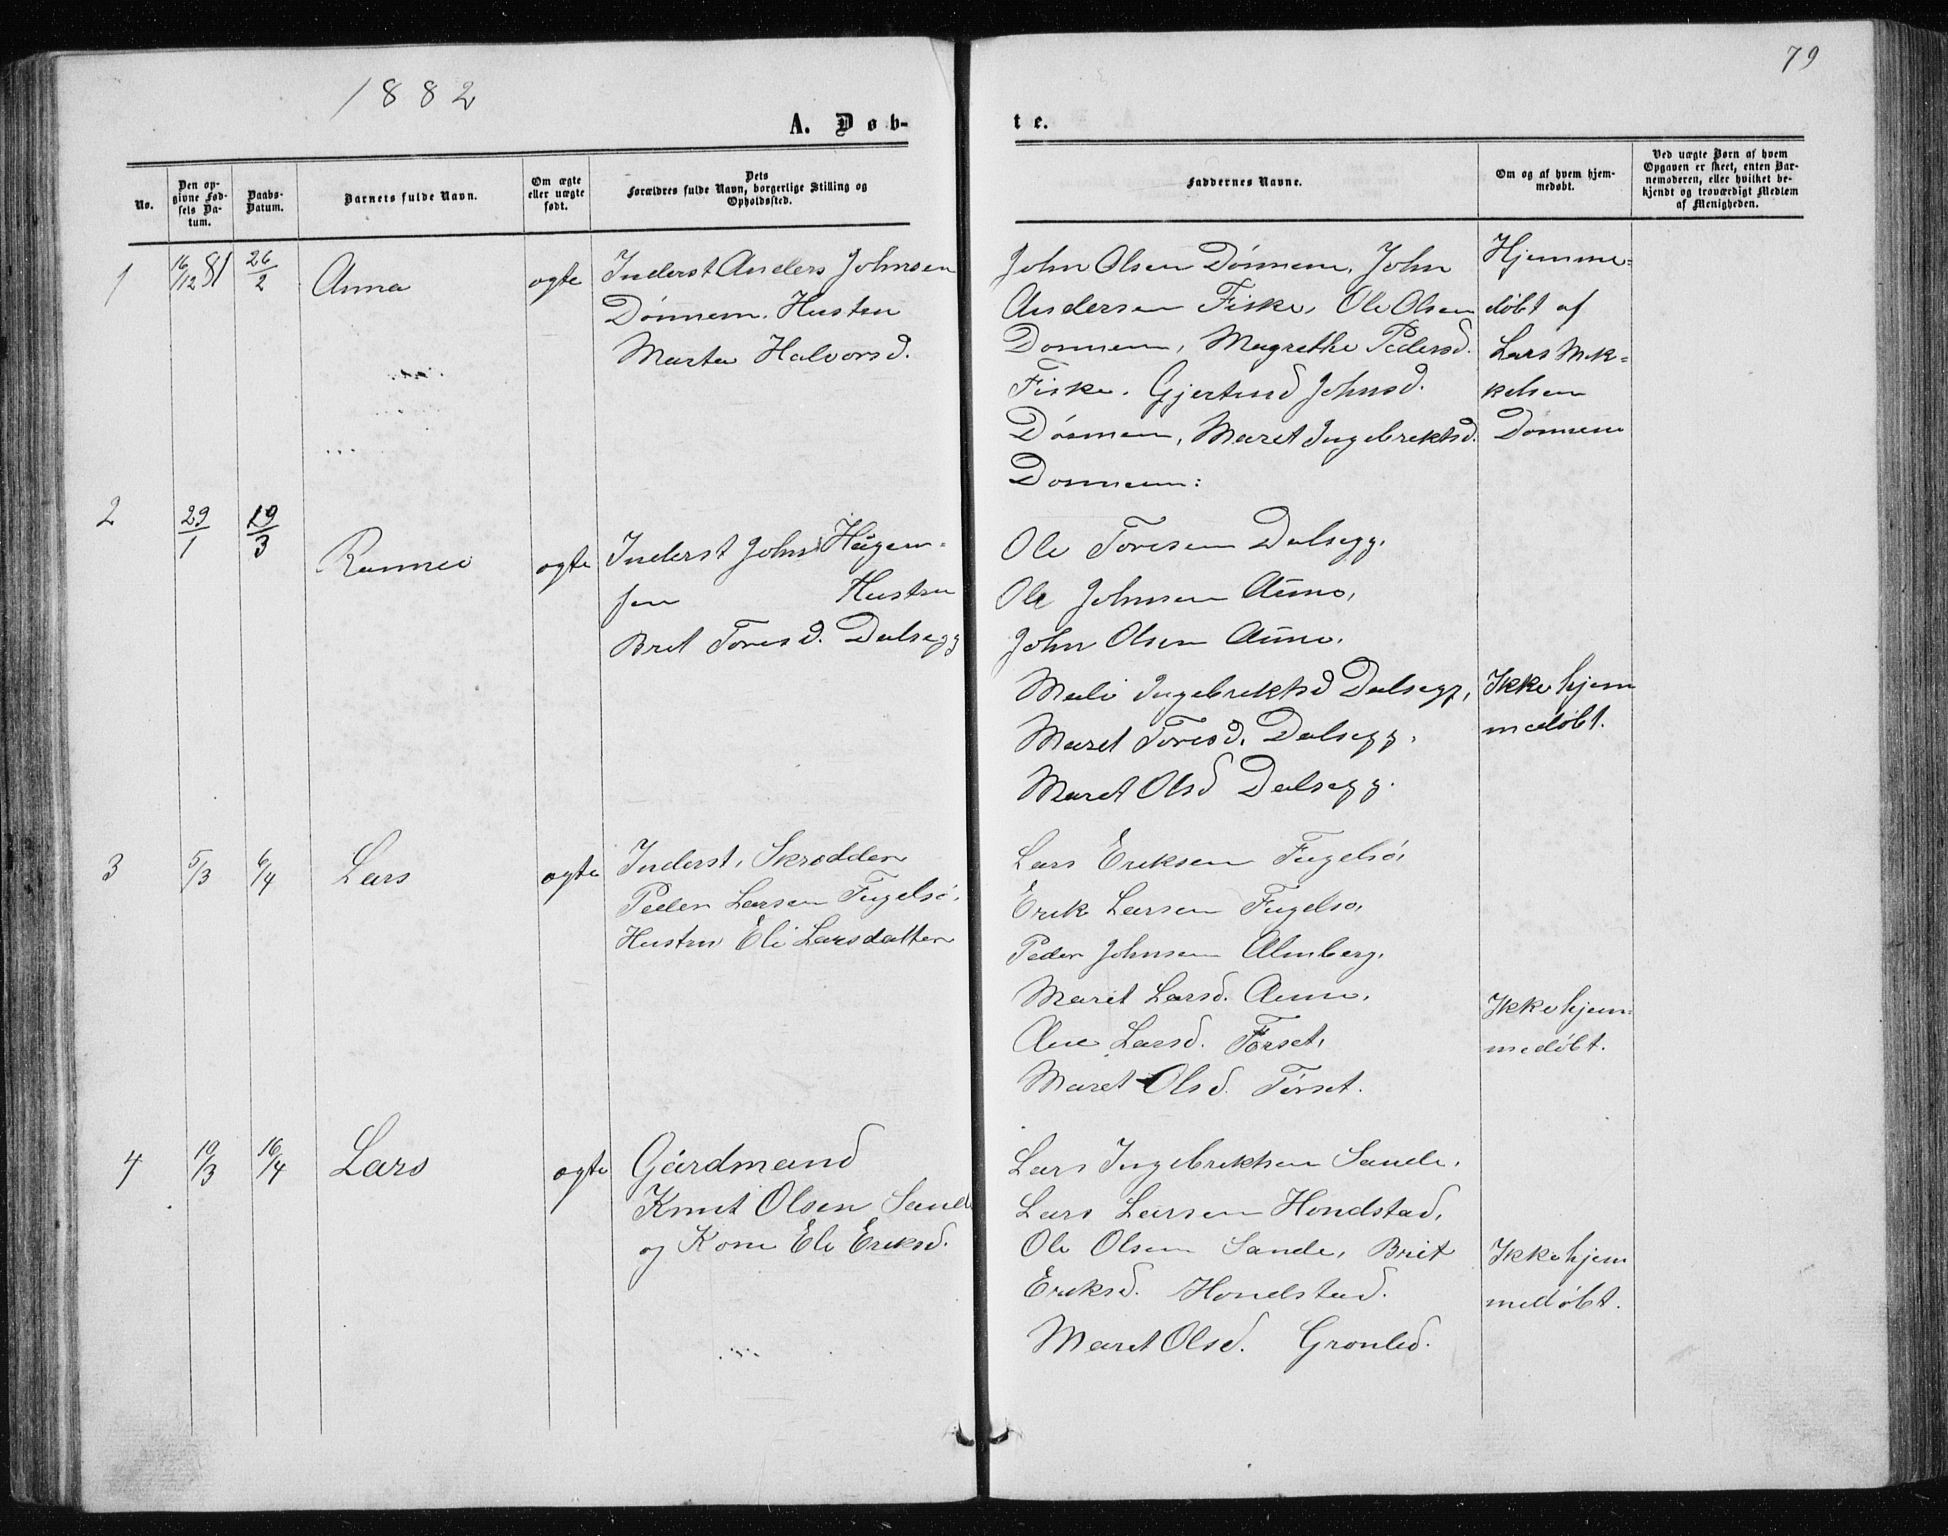 79
1882
A. Døb-
te.
No.
Den op-
givne Fød-
sels Da-
tum.
Daabs-
Datum.
Barnets fulde Navn.
Om ægte
eller uægte
født.
Dets
Forældres fulde Navn, borgerlige Stilling og
Opholdssted.
Faddernes Navne.
Om og af hvem hjem-
medøbt.
Ved uægte Børn af hvem
Opgaven er skeet, enten Bar-
nemoderen, eller hvilket be-
kjendt og troværdigt Medlem
af Menigheden.
1
16/12 81
26/2
Anna
ogte
Inderst Anders Johnsen
Dönnem. Hustru
Marta Halvorsd.
John Olsen Dönnem, John
Andersen Fiske, Ole Olsen
Donnem, Magrethe Pedersd.
Fiske. Gjertrud Johnsd.
Dönnem, Maret Ingebrektsd.
Donnem:
Hjemme=
døbt af
Lars Mik=
kelsen
Donnem
2
29/1
19/3
Rannei
ogte
Inderst John Hågen-
sen Hustru
Brit Toresd. Dalsegg
Ole Toresen Dalsegg,
Ole Johnsen Aüne,
John Olsen Aüne,
Mali Ingebrektsd Dalsegg,
Maret Toresd. Dalsegg,
Maret Olsd Dalsegg.
Ikke hjem
medøbt.
3
5/3
6/4
Lars
ogte
Inderst, Skrædder
Peder Larsen Fugelsö,
Hustru Eli Larsdatter
Lars Eriksen Fugelsö,
Erik Larsen Fugelso,
Peder Johnsen Almberg,
Marit Larsd. Aune,
Ane Larsd. Torset,
Maret Olsd. Törset.
Ikke hjem-
medøbt.
4
19/3
16/4
Lars
ogte
Gårdmand
Knut Olsen Sande
og Kone Eli Eriksd.
Lars Ingebriktsen Sande,
Lars Larsen Hondstad,
Ole Olsen Sande, Brit
Eriksd. Hondstad.
Maret Olsd. Gronlid.
Ikke hjem
medøbt.